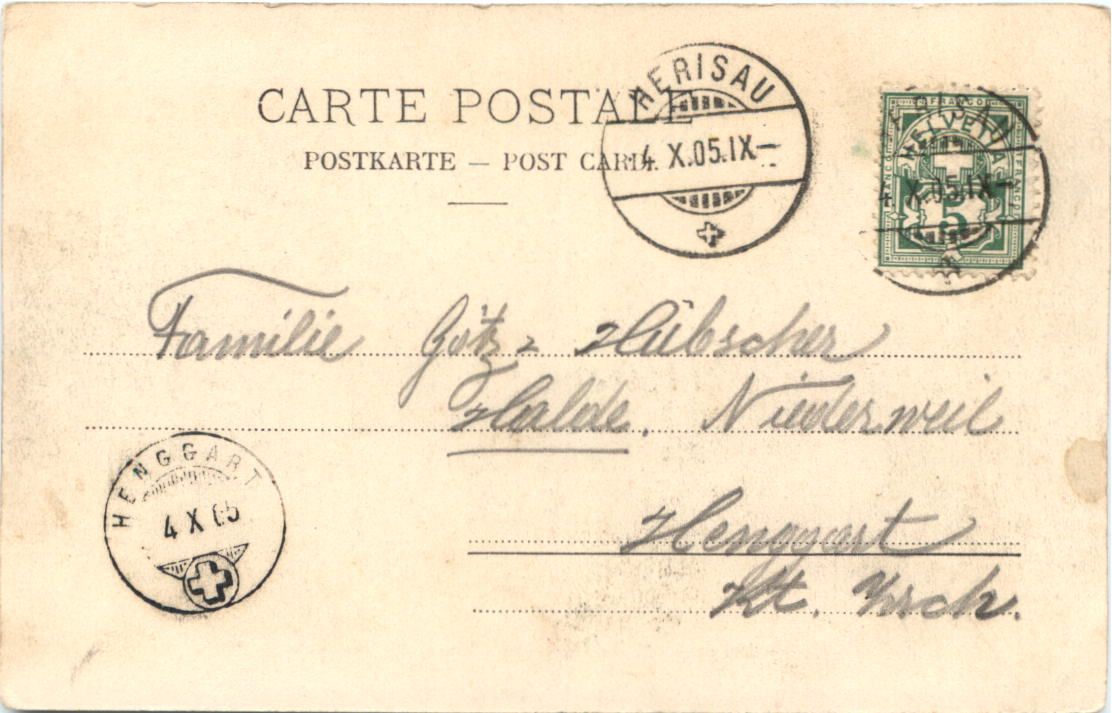 CARTE POSTALE
POSTKARTE – POST CARD.
HERISAU
4. X.05.IX–
HELVETIA
FRANCO
FRANCO
5
X.05.IX–
Familie Götz- Hübscher
Halde. Niederweil
HENGGART
4 X 05
Henggart
Kt. Zrch.